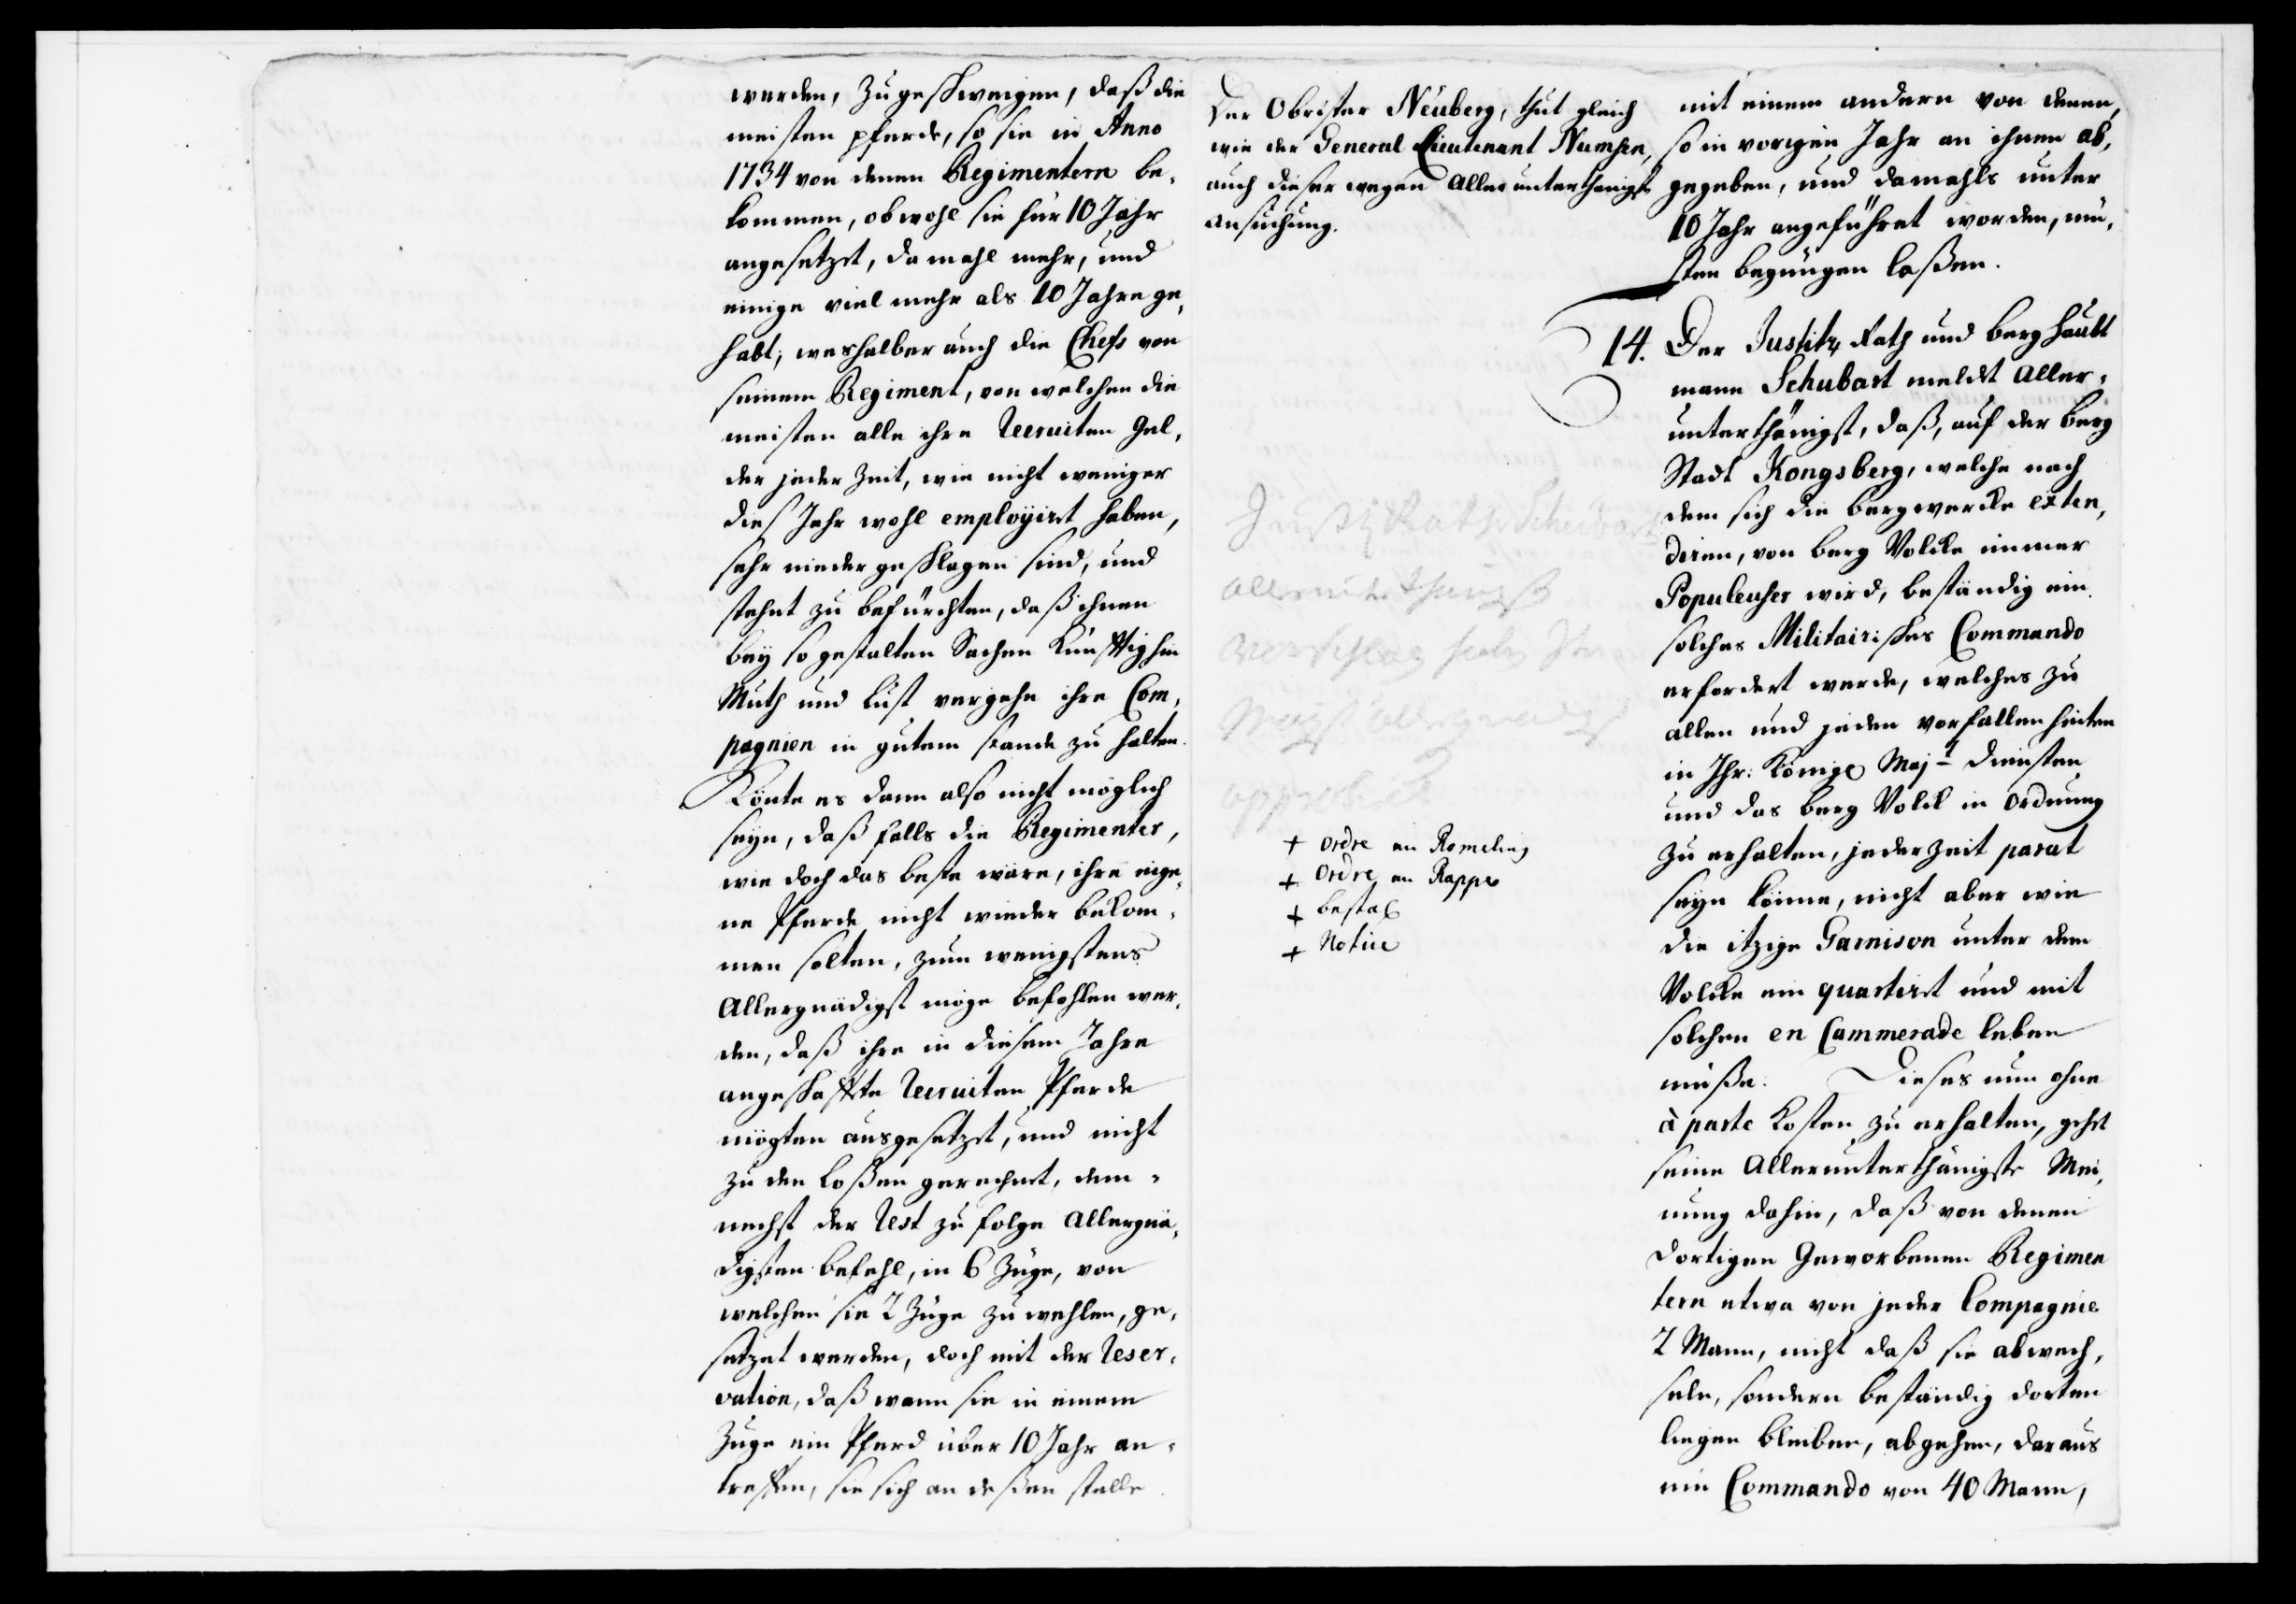 werden, zu geschweigen, daß die
meisten pferde, so sie in Anno
1734 von denen Regimentern be,
kommen, obwohl sie für 10 Jahr
angesetzet, damahl mehr, und
einige viel mehr als 10 Jahre ge,
habt; weshalber auch die Chefs von
seinem Regiment, von welchen die
meisten alle ihre Recruiten Gel,
der jeder Zeit, wie nicht weniger
dies Jahr wohl employiret haben,
sehr nieder geschlagen sind, und
stehet zu befürchten, daß ihnen
bey so gestalten Sachen künfftig hin
Muth und Lust vergehe ihre Com,
pagnien in gutem stande zu halten.
Könte es dann also nicht möglich
seyn, daß falls die Regimenter,
wie doch das beste wäre, ihre eige,
ne Pferde nicht wieder bekom,
men solten, zum wenigstens
Allergnädigst möge befohlen wer,
den, daß ihre in diesem Jahre
angeschaffte Recruiten Pferde
mögten ausgesetzet, und nicht
zu den Loßen gerechnet, dem,
nechst der Rest zu folge Allergnä,
digsten befehl, in 6 Züge, von
welchen sie 2 Züge zu wehlen, ge,
setzet werden, doch mit der Reser,
vation, daß wann sie in einem
Zuge ein Pferd über 10 Jahr an,
treffen, sie sich an deßen stelle
Der Obrister Neuberg, thut gleich
wie der General Lieutenant Numsen,
auch dieser wegen Allerunterthänigste
Ansuchung.
Justitz Rath Schubart
allerunterthänigst
Vorschlag
Mayst allergnädigst
approbiret
+ Ordre an Romeling
+ Ordre an Rappe
+ bestal
+ Notice
mit einem andern von denen,
so in vorigen Jahr an ihnen ab,
gegeben, und damahls unter
10 Jahr angeführet worden, mü,
sten begnügen laßen.
14. Der Justitz Rath und Berg Haubt
mann Schubart meldet Aller,
unterthänigst, daß, auf der Berg
Stadt Kongsberg, welche nach
dem sich die bergwercke exten,
diren, von berg Volcke immer
Populeuser wird, beständig ein
solches Militairisches Commando
erfordert werde, welches zu
allen und jeden vorfallenheiten
in Ihr: Königl Maj:t diensten
und das berg Volck in Ordnung
zu erhalten, jederzeit parat
seyn könne, nicht aber wie
die itzige Garnison unter dem
Volcke ein quartiret und mit
solchen en Cammerade leben
müße. Dieses nun ohne
à parte kosten zu erhalten, gehet
seine Allerunterthänigste Mei,
nung dahin, daß von denen
dortigen Geworbenen Regimen
tern etwa von jeder Compagnie
2 Mann, nicht daß sie abwech,
seln, sondern beständig dorten
liegen bleiben, abgehen, daraus
ein Commando von 40 Mann,